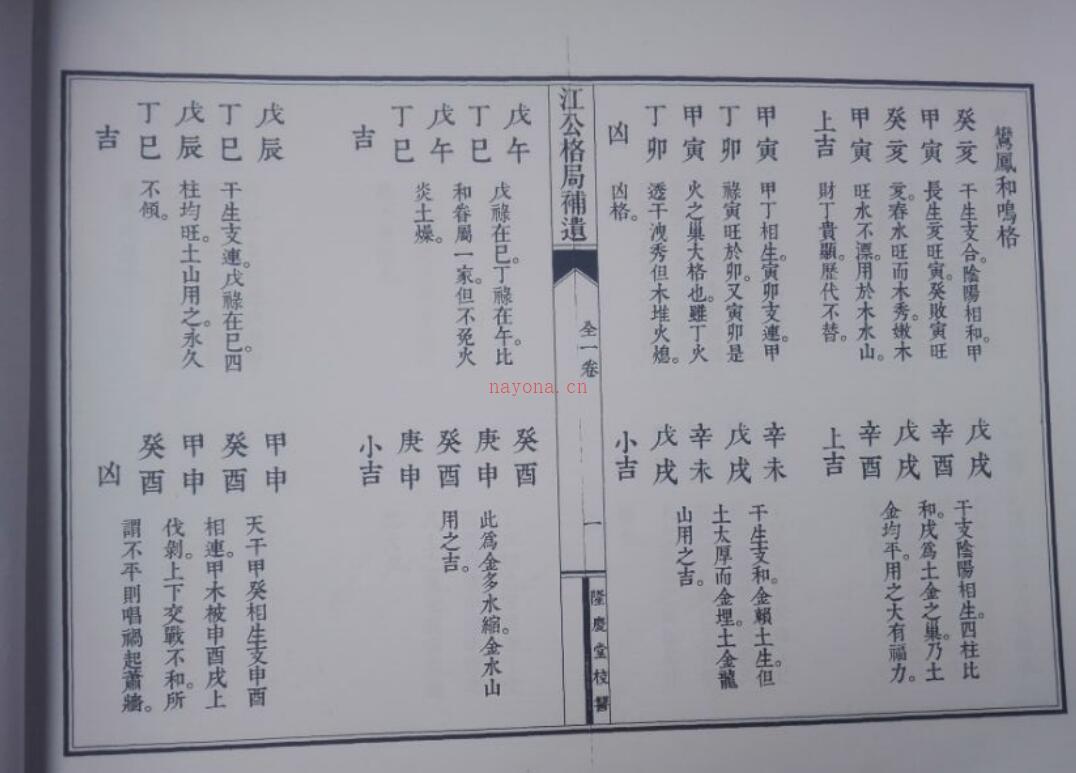 鸞鳳和鳴格
癸亥
甲寅
癸亥
甲寅
上吉
干生支合。陰陽相和。甲
長生亥旺寅。癸敗寅旺
亥。春水旺而木秀。嫩木
旺水不漂。用於木水山。
財丁貴顯。歷代不替。
戊戌
辛酉
戊戌
辛酉
上吉
干支陰陽相生。四柱比
和。戌為土金之巢。乃土
金均平。用之大有福力。
甲寅
丁卯
甲寅
丁卯
凶
甲丁相生。寅卯支連。甲
祿寅旺於卯。又寅卯是
火之巢大格也。雖丁火
透干洩秀但木堆火熄。
凶格。
辛未
戊戌
辛未
戊戌
小吉
干生支和。金賴土生。但
土太厚而金埋。土金龍
山用之吉。
江公格局補遺
全一卷
一
隆慶堂校
戊午
丁巳
戊午
丁巳
吉
戊祿在巳。丁祿在午。比
和眷屬一家。但不免火
炎土燥。
癸酉
庚申
癸酉
庚申
小吉
此為金多水縮。金水山
用之吉。
戊辰
丁巳
戊辰
丁巳
吉
干生支連。戊祿在巳。四
柱均旺。土山用之。永久
不傾。
甲申
癸酉
甲申
癸酉
凶
天干甲癸相生支申酉
相連。甲木被申酉戌上
伐剝。上下交戰不和。所
謂不平則唱禍起蕭牆。
nayona.cn